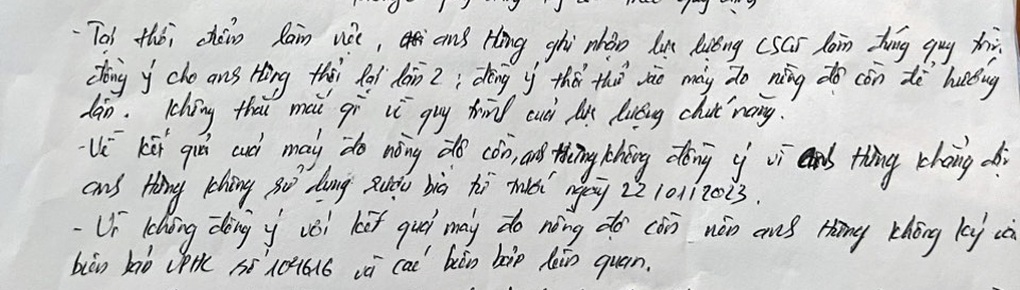 - Tại thời điểm làm việc, anh Hùng ghi nhận lực lượng CSGT làm đúng quy trình,
đồng ý cho anh Hùng thổi lại lần 2; đồng ý thổi thử vào máy đo nồng độ cồn để hướng
dẫn. Không thắc mắc gì về quy trình của lực lượng chức năng.
- Về kết quả của máy đo nồng độ cồn, anh Hùng không đồng ý vì anh Hùng khẳng định
anh Hùng không sử dụng rượu bia từ trước ngày 22/01/2023.
- Vì không đồng ý với kết quả máy đo nồng độ cồn nên anh Hùng không ký vào
biên bản VPHC số 109616 và các biên bản liên quan.